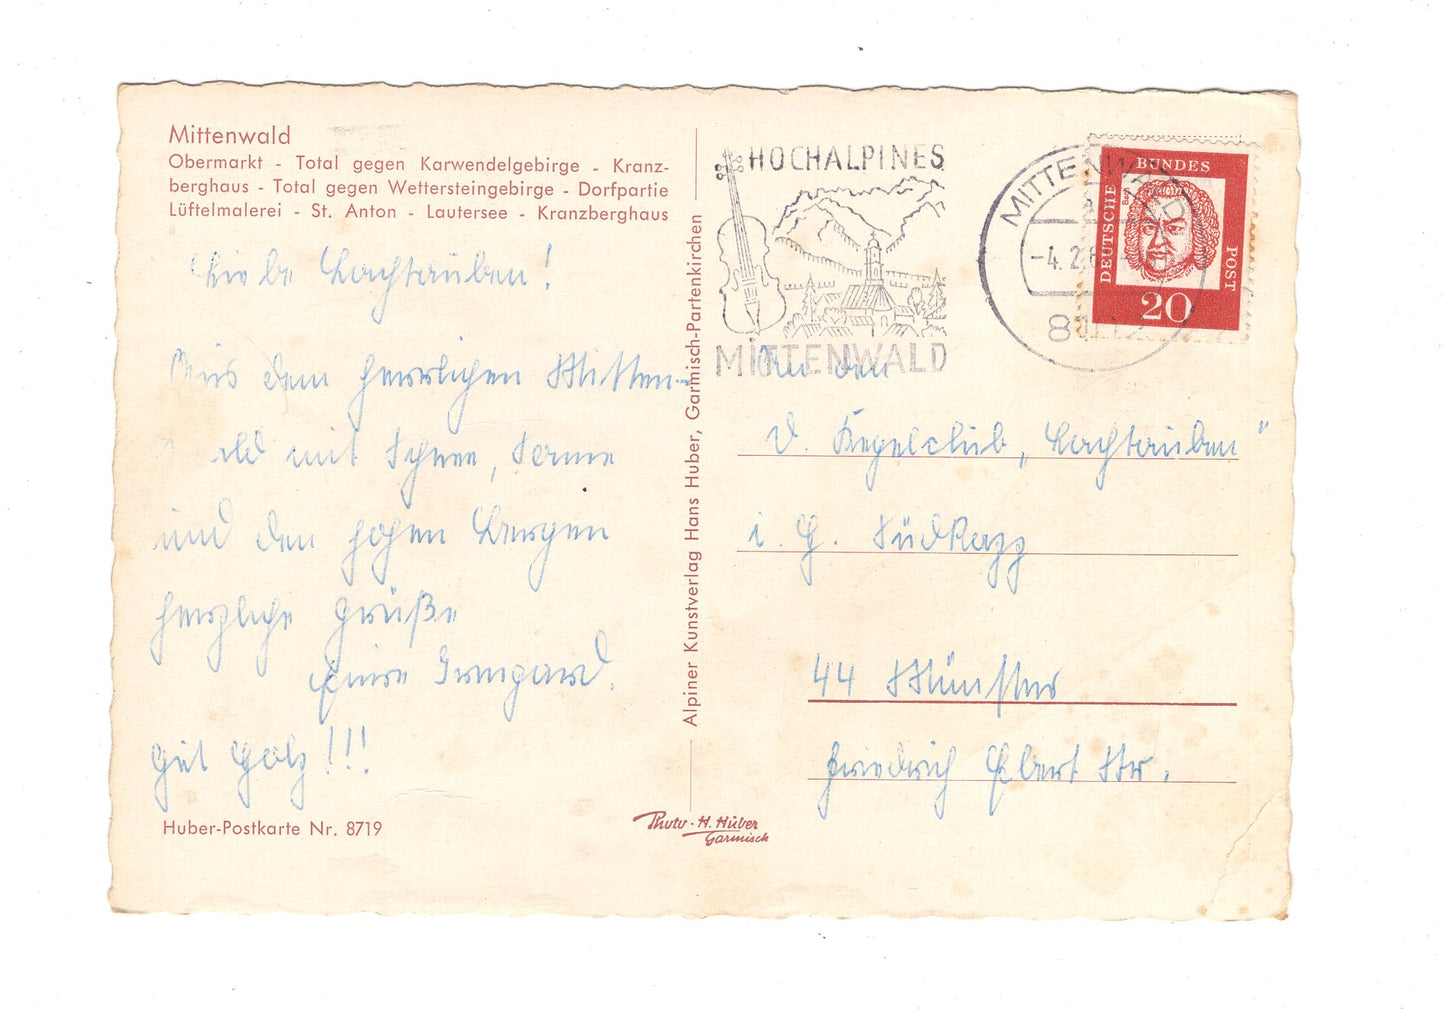 Mittenwald
Obermarkt - Total gegen Karwendelgebirge - Kranz-
berghaus - Total gegen Wettersteingebirge - Dorfpartie
Lüftelmalerei - St. Anton - Lautersee - Kranzberghaus
Liebe Lachtauben!
Aus dem herrlichen Mitten-
ald mit Schnee, Sonne
und den hohen Bergen
herzliche Grüße
Eure Irmgard.
Gut Holz!!!
Huber-Postkarte Nr. 8719
Alpiner Kunstverlag Hans Huber, Garmisch-Partenkirchen
Photo - H. Huber
Garmisch
HOCHALPINES
MITTENWALD
MITTENWALD
-4.2.6
DEUTSCHE BUNDES POST
Bach
20
An den
D. Kegelclub „Lachtauben"
i. H. Südkapp
44 Münster
Friedrich Ebert Str.